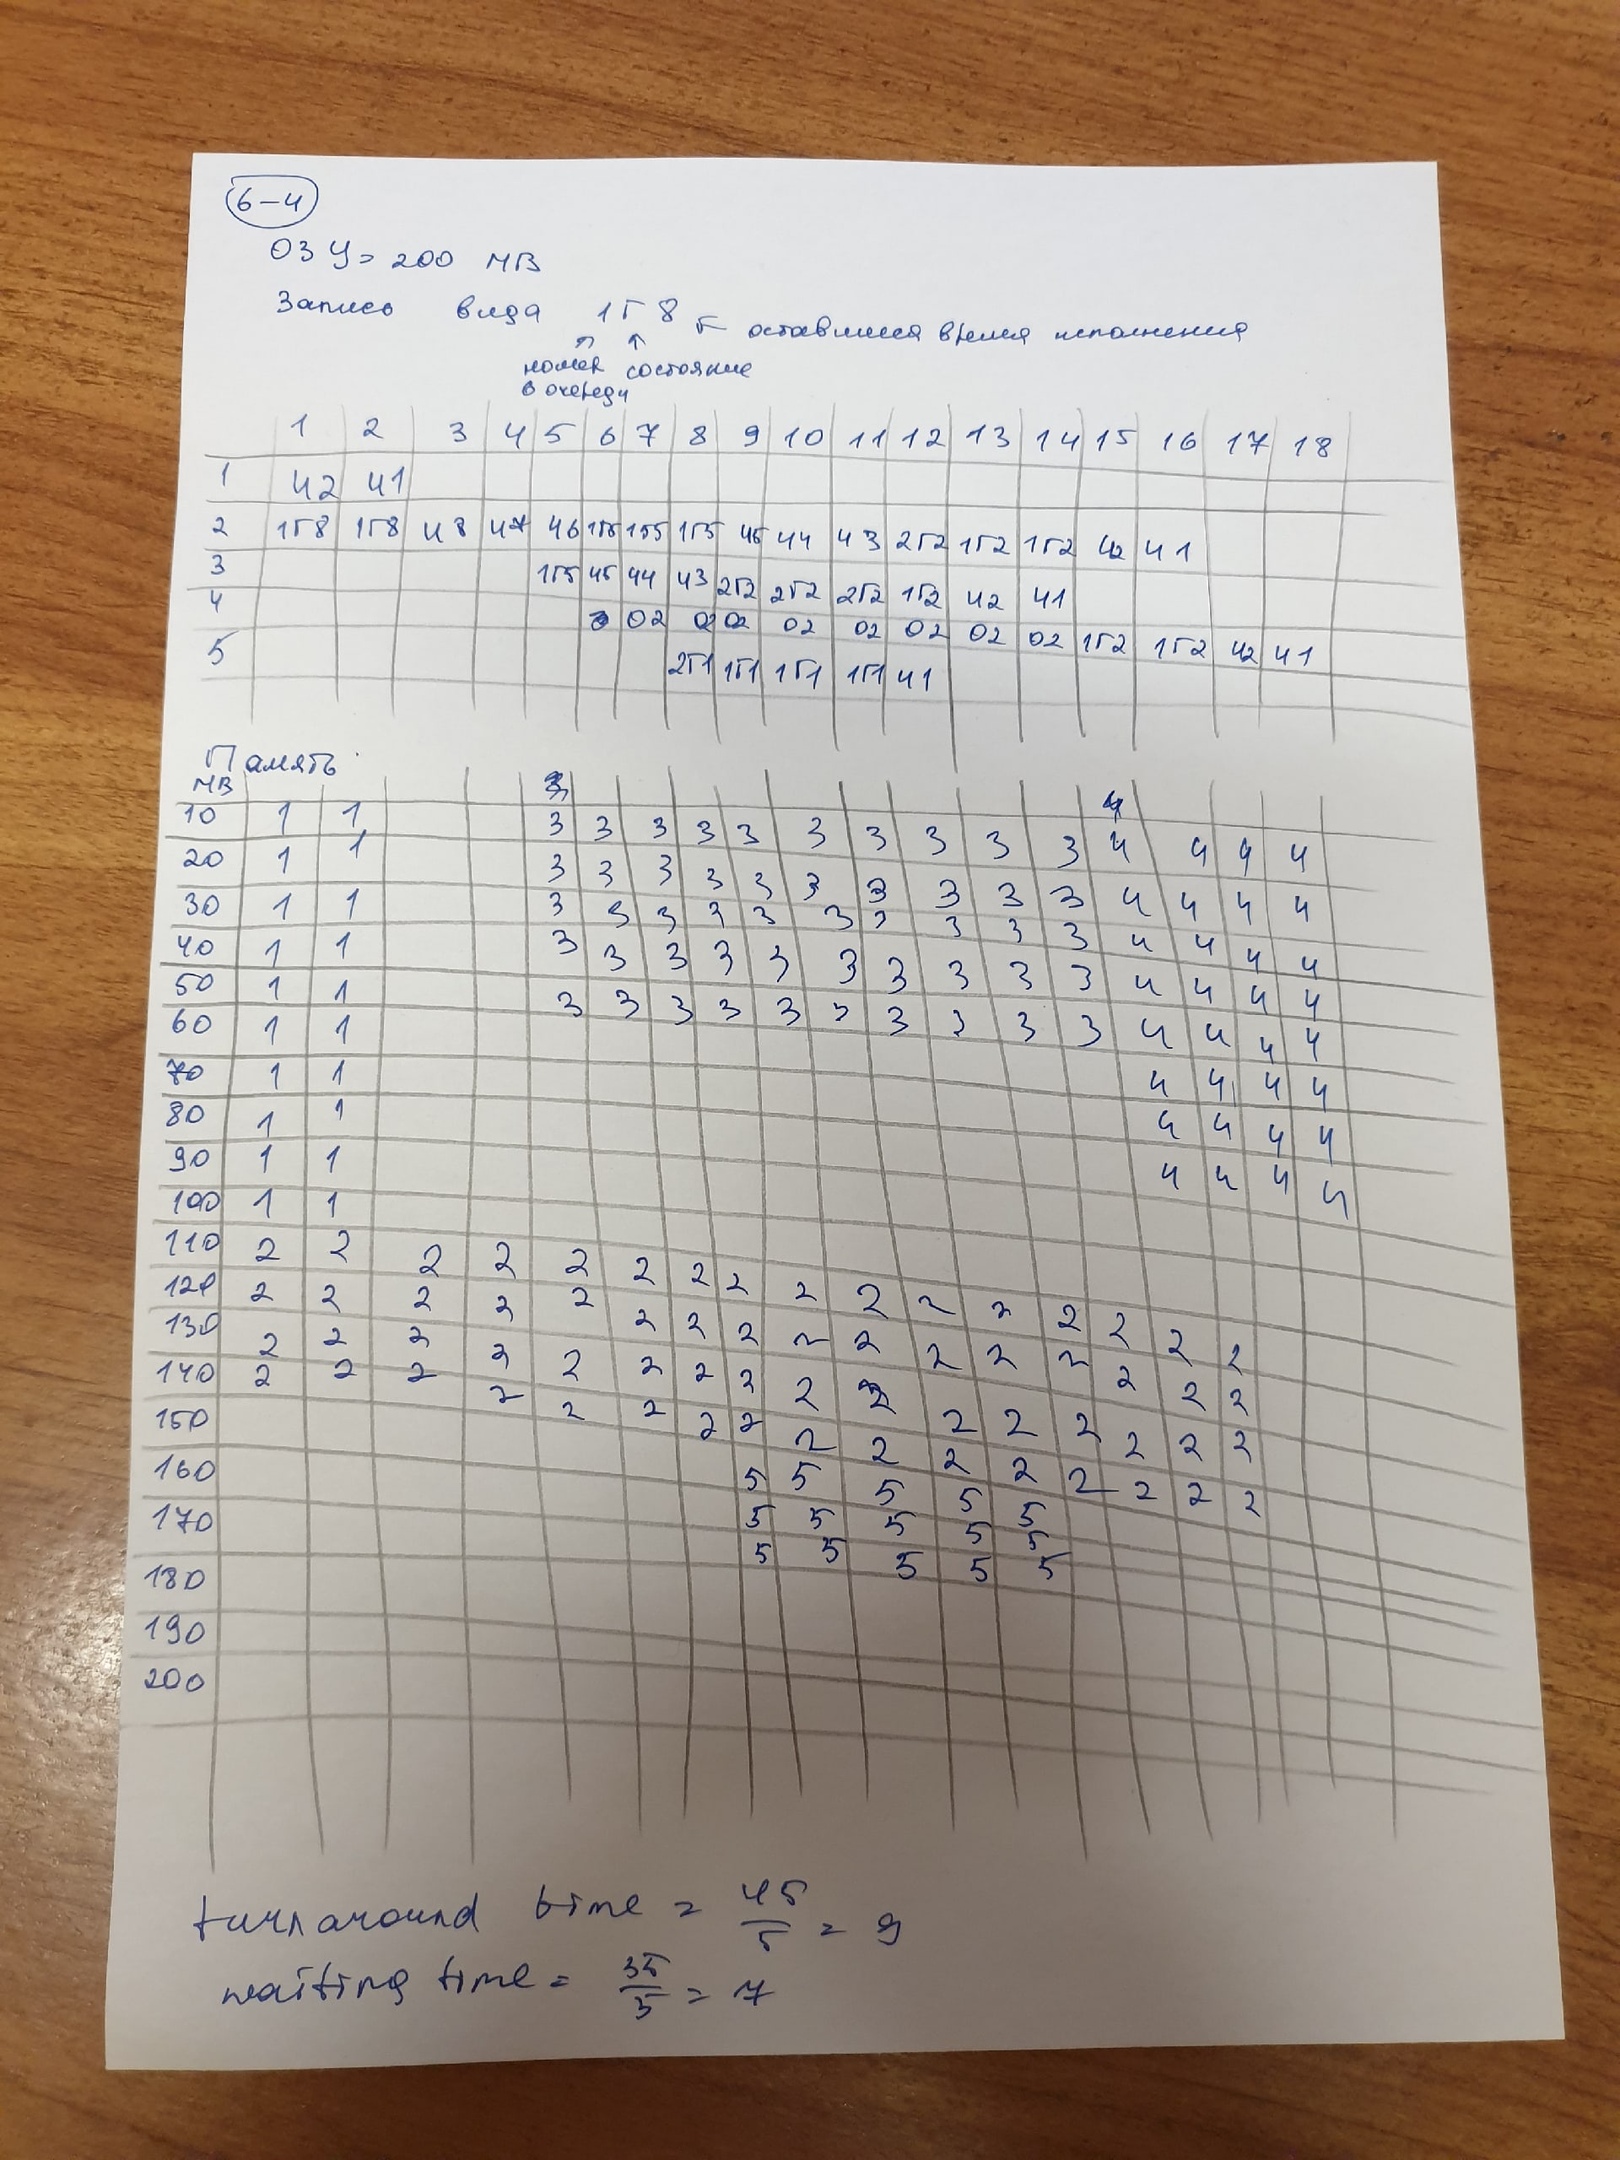 6-4
ОЗУ = 200 МВ
Запись вида 1Г8 ← оставшееся время исполнения
номер состояние
в очереди
1 2 3 4 5 6 7 8 9 10 11 12 13 14 15 16 17 18
1 И2 И1
2 1Г8 1Г8 И8 И7 И6 1Г5 1Г5 1Г5 И5 И4 И3 2Г2 1Г2 1Г2 И2 И1
3 1Г5 И5 И4 И3 2Г2 2Г2 2Г2 1Г2 И2 И1
4 02 02 02 02 02 02 02 02 1Г2 1Г2 И2 И1
5 2Г1 1Г1 1Г1 1Г1 И1
Память
МВ
10 1 1 3 3 3 3 3 3 3 3 3 3 4 4 4 4
20 1 1 3 3 3 3 3 3 3 3 3 3 4 4 4 4
30 1 1 3 3 3 3 3 3 3 3 3 3 4 4 4 4
40 1 1 3 3 3 3 3 3 3 3 3 3 4 4 4 4
50 1 1 3 3 3 3 3 3 3 3 3 3 4 4 4 4
60 1 1 4 4 4 4
70 1 1 4 4 4 4
80 1 1 4 4 4 4
90 1 1
100 1 1
110 2 2 2 2 2 2 2 2 2 2 2 2 2 2 2 2
120 2 2 2 2 2 2 2 2 2 2 2 2 2 2 2 2
130 2 2 2 2 2 2 2 2 2 2 2 2 2 2 2 2
140 2 2 2 2 2 2 2 2 2 2 2 2 2 2 2 2
150 5 5 5 5 5
160 5 5 5 5 5
170 5 5 5 5 5
180
190
200
turnaround time = 45/5 = 9
waiting time = 35/5 = 7